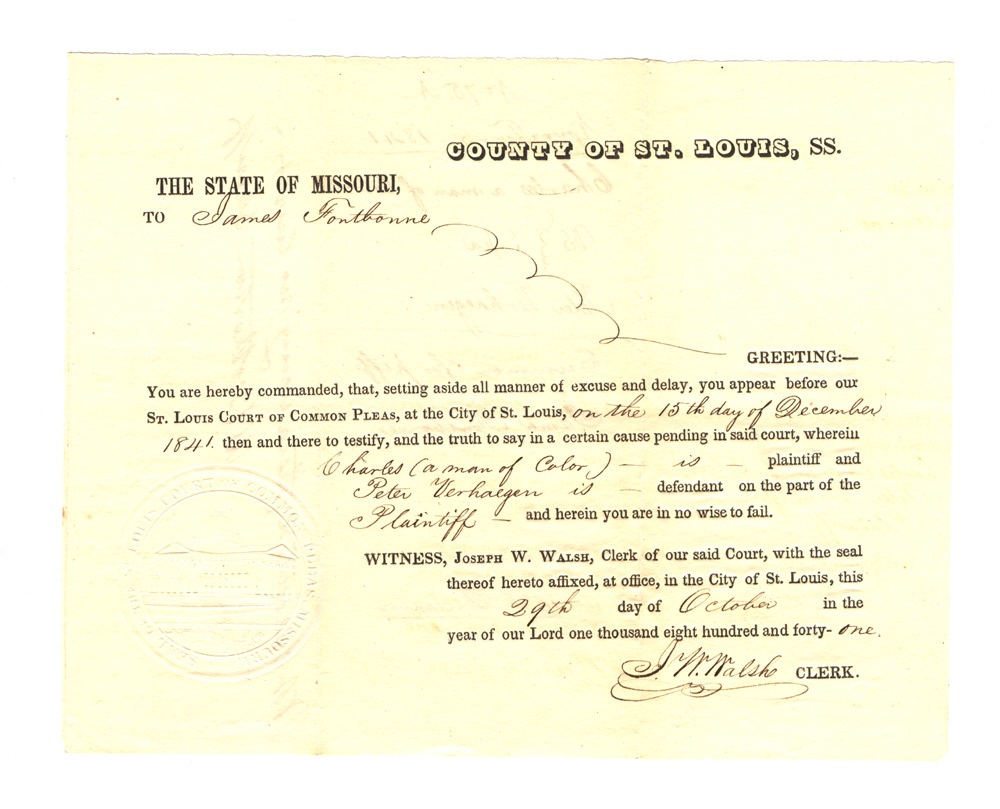 COUNTY OF ST. LOUIS, SS.
THE STATE OF MISSOURI,
TO James Fontbonne
GREETING:—
You are hereby commanded, that, setting aside all manner of excuse and delay, you appear before our
ST. LOUIS COURT OF COMMON PLEAS, at the City of St. Louis, on the 15th day of December
1841. then and there to testify, and the truth to say in a certain cause pending in said court, wherein
Charles (a man of Color,) — is — plaintiff and
Peter Verhaegen is — defendant on the part of the
Plaintiff — and herein you are in no wise to fail.
WITNESS, JOSEPH W. WALSH, Clerk of our said Court, with the seal
thereof hereto affixed, at office, in the City of St. Louis, this
29th day of October in the
year of our Lord one thousand eight hundred and forty-one.
J. W. Walsh CLERK.
LOUIS COURT OF COMMON PLEAS MISSOURI
SEAL OF